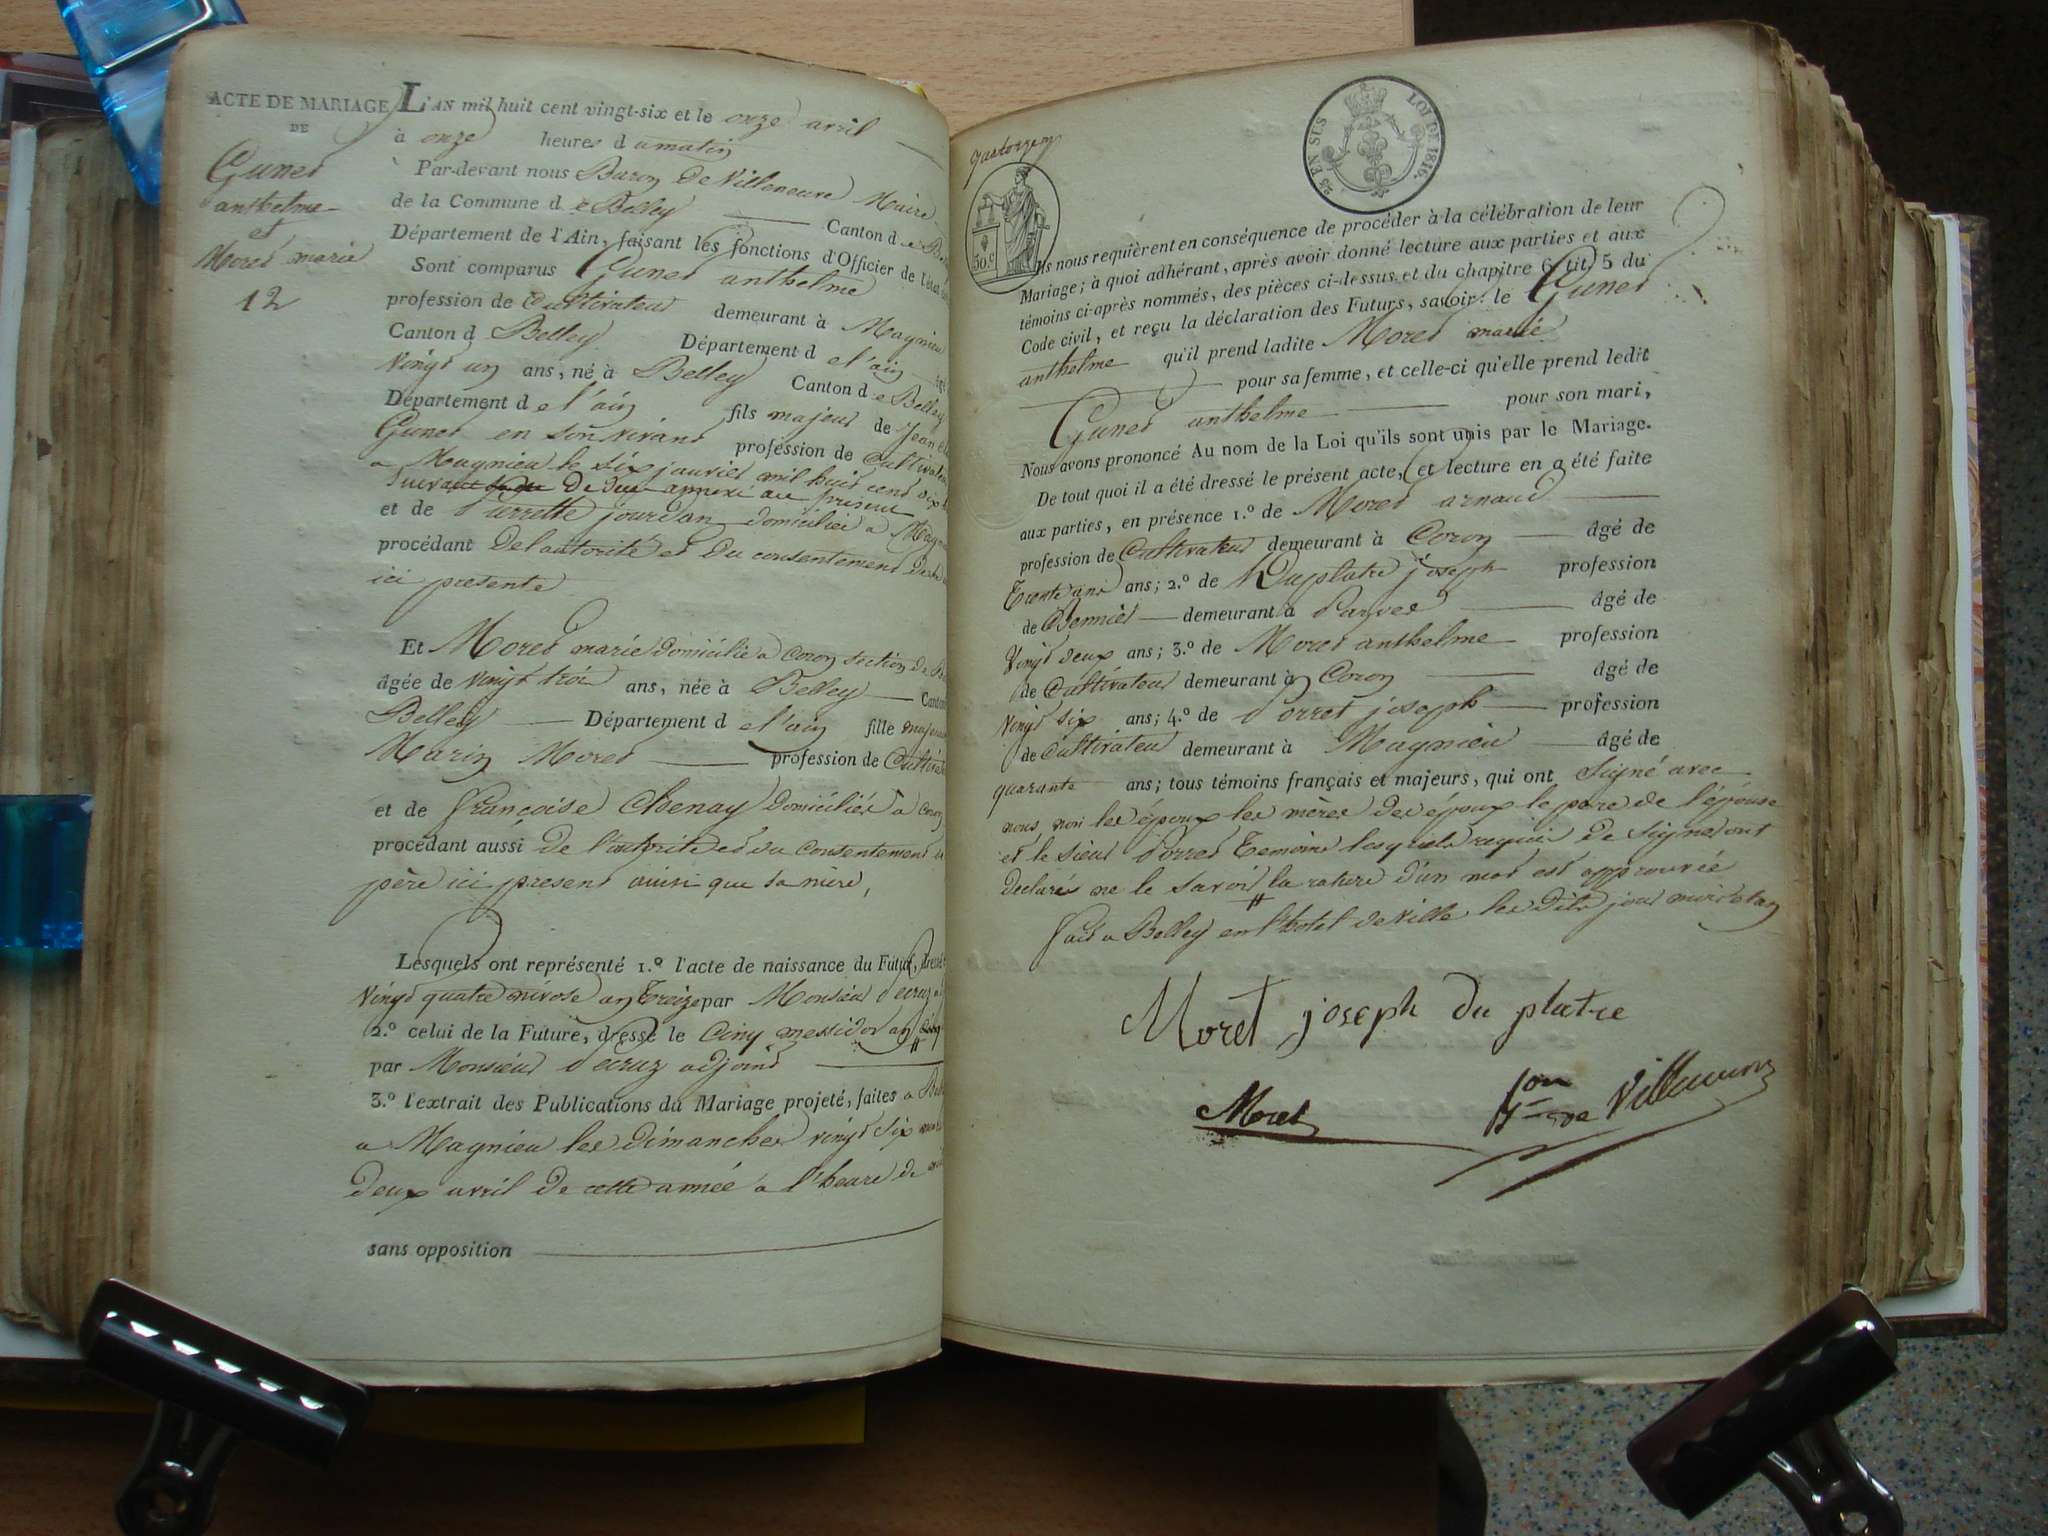 ACTE DE MARIAGE
DE
Cunet
anthelme
et
Moret marie
12
L'AN mil huit cent vingt-six et le onze avril
à onze heures d u matin
Par-devant nous Baron de Villeneuve Maire
de la Commune d e Belley Canton d e
Département de l'Ain, faisant les fonctions d'Officier de l'état
Sont comparus Cunet anthelme
profession de Cultivateur demeurant à Magnieu
Canton d Belley Département d e l'ain
vingt un ans, né à Belley Canton d e Belley
Département d e l'ain fils majeur de Jean
Cunet en son vivant profession de Cultivateur
a Magnieu le six janvier mil huit cent
et de Pierrette jourdan domiciliée a
procédant De l'autorité et du consentement
ici presente
Et Moret marie domicilié a Coron section de
âgée de vingt troi ans, née à Belley Canton
Belley Département d e l'ain fille majeure
Marin Moret profession de Cultivateur
et de françoise Chenay domiciliés a Coron
procédant aussi de l'autorité et du consentement
père ici present ainsi que sa mère,
Lesquels ont représenté 1.º l'acte de naissance du Futur, dressé
vingt quatre nivose an treize par Monsieur
2.º celui de la Future, dressé le Cinq messidor an
par Monsieur adjoint
3.º l'extrait des Publications du Mariage projeté, faites a
a Magnieu les dimanches vingt six
deux avril de cette année a l'heure de
sans opposition
quatorze
25 EN SUS LOI DE 1816.
50.c
Ils nous requièrent en conséquence de procéder à la célébration de leur
Mariage; à quoi adhérant, après avoir donné lecture aux parties et aux
témoins ci-après nommés, des pièces ci-dessus et du chapitre 6, tit. 5 du
Code civil, et reçu la déclaration des Futurs, savoir: le Cunet
anthelme qu'il prend ladite Moret marie
pour sa femme, et celle-ci qu'elle prend ledit
Cunet anthelme pour son mari,
Nous avons prononcé Au nom de la Loi qu'ils sont unis par le Mariage.
De tout quoi il a été dressé le présent acte, et lecture en a été faite
aux parties, en présence 1.º de Moret arnaud
profession de Cultivateur demeurant à Coron âgé de
Trente ans ans; 2.º de Duplatre joseph profession
de demeurant à Parves âgé de
vingt deux ans; 3.º de Moret anthelme profession
de Cultivateur demeurant à Coron âgé de
vingt six ans; 4.º de Porret joseph profession
de Cultivateur demeurant à Magnieu âgé de
quarante ans; tous témoins français et majeurs, qui ont Signé avec
nous, non les époux les mères des époux le père de l'épouse
et le sieur Porret Temoins lesquels requis de signer ont
declarés ne le savoir la rature d'un mot est approuvée
fait a Belley en l'hotel de ville les dits jour mois et an
Moret joseph du platre
Moret
Bon de Villeneuve